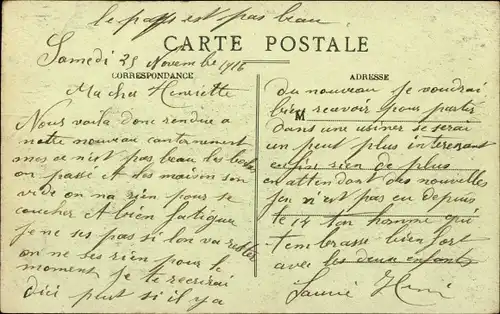 le pays est pas beau
CARTE POSTALE
Samedi 25 Novembre 1916
CORRESPONDANCE
Ma cher Henriette
Nous voila donc rendue a
notre nouveau cantonnement
mes ce n'est pas beau les boches
on passé A des maison son
vide on na rien pour se
coucher A bien fatiguer
je ne ses pas si lon va rester
on ne ses rien pour le
moment je te recrirai
dici peut si il y a
ADRESSE
M
du nouveau je voudrai
bien recevoir pour partir
dans une usiner se serai
un peut plus interesant
enfin rien de plus
en attendant des nouvelles
jen n'est pas eu depuis
le 14 ton homme qui
t'embrasse bien fort
avec les deux enfants